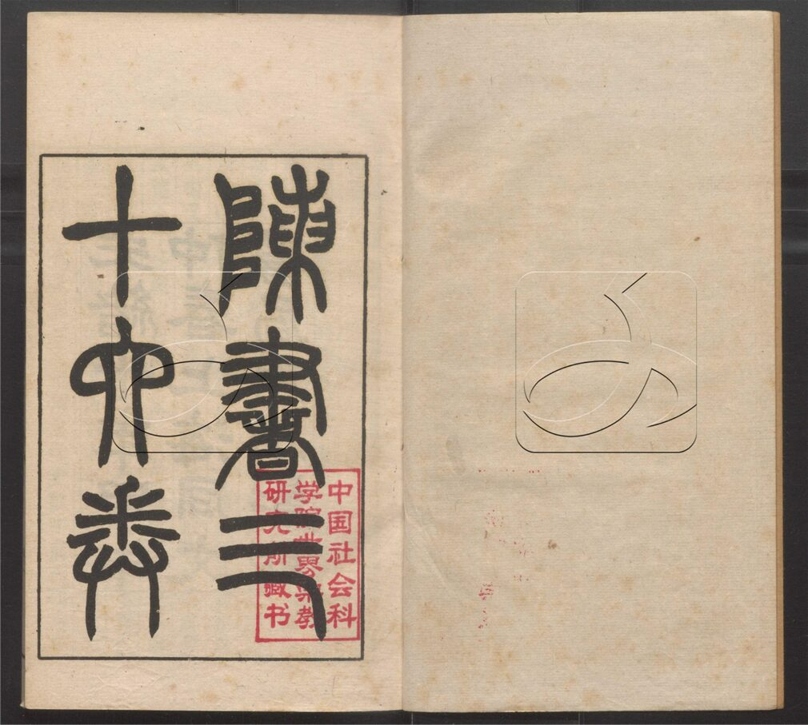 陳書三
十六卷
中国社会科
学院世界宗教
研究所藏书